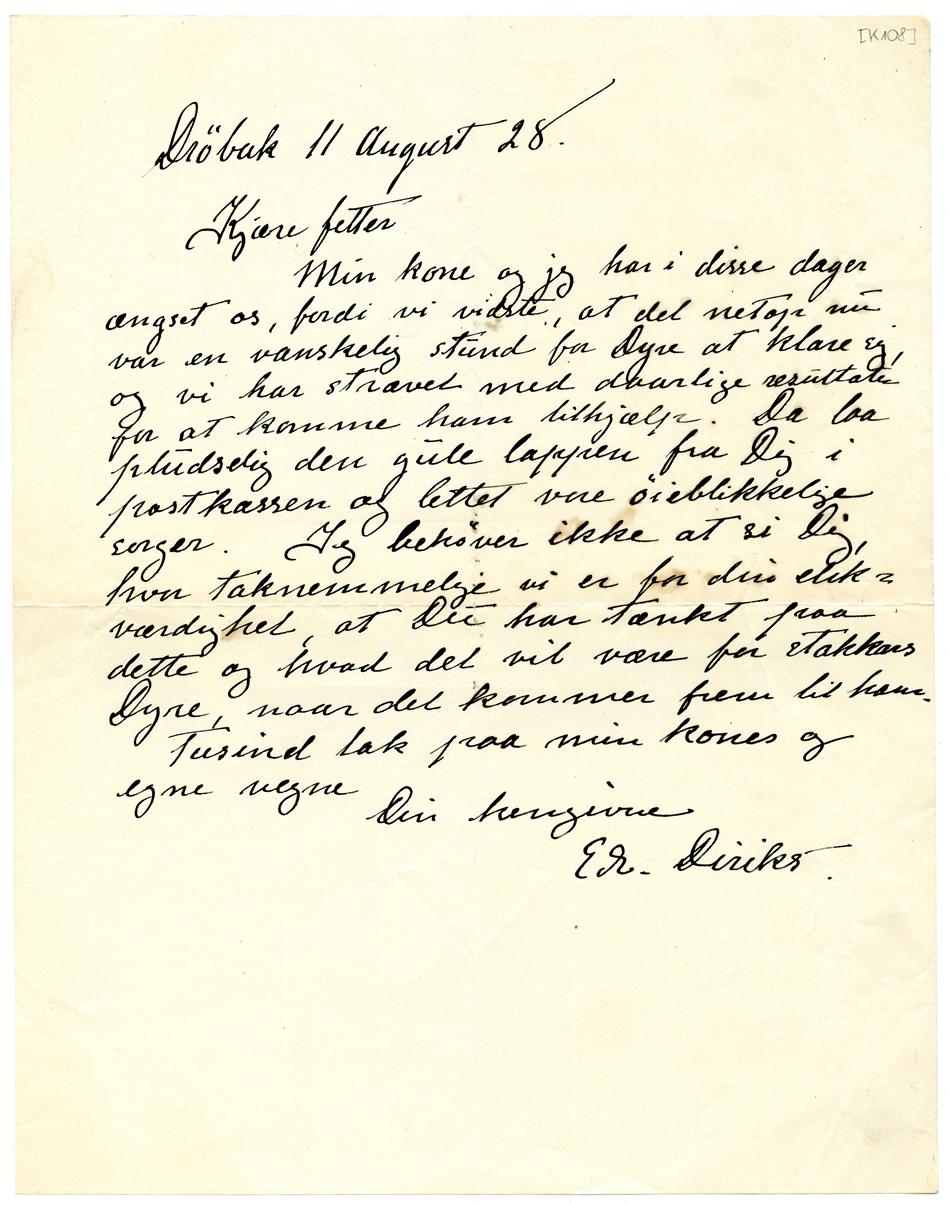 [K108]
Dröbak 11 August 28.
Kjære fetter
Min kone og jeg har i disse dager
ængset os, fordi vi vidste, at det netop nu
var en vanskelig stund for Dyre at klare sig,
og vi har strævet med daarlige resultater
for at komme ham tilhjælp. Da laa
pludselig den gule lappen fra Dig i
postkassen og lettet vore öieblikkelige
sorger. Jeg behöver ikke at si Dig,
hvor taknemmelige vi er for din elsk=
værdighet, at Du har tænkt paa
dette og hvad det vil være for stakkars
Dyre, naar det kommer frem til ham.
Tusind tak paa min kones og
egne vegne
Din hengivne
Edv. Diriks.